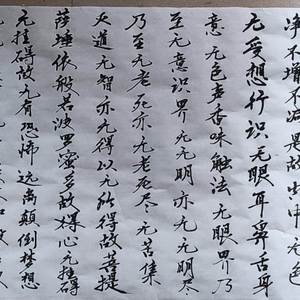 净不增不减是故空中无色
无受想行识无眼耳鼻舌身
意无色声香味触法无眼界乃
至无意识界无无明亦无无明尽
乃至无老死亦无老死尽无苦集
灭道无智亦无得以无所得故菩提
萨埵依般若波罗蜜多故得心无挂碍
无挂碍故无有恐怖远离颠倒梦想